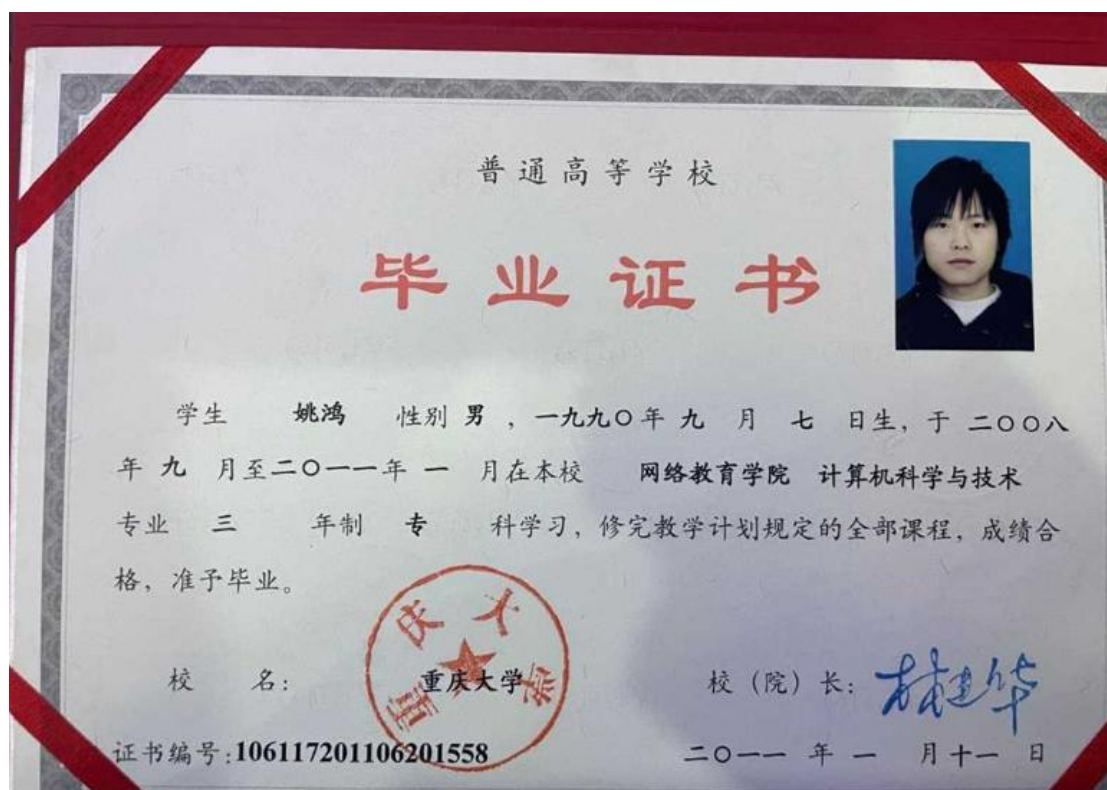 普通高等学校
毕业证书
学生 姚鸿 性别 男 ，一九九〇年 九 月 七 日生，于 二〇〇八
年 九 月至二〇一一年 一 月在本校 网络教育学院 计算机科学与技术
专业 三 年制 专 科学习，修完教学计划规定的全部课程，成绩合
格，准予毕业。
重庆大学
校 名： 重庆大学 校（院）长：林建华
证书编号:106117201106201558 二〇一一 年 一 月十一 日